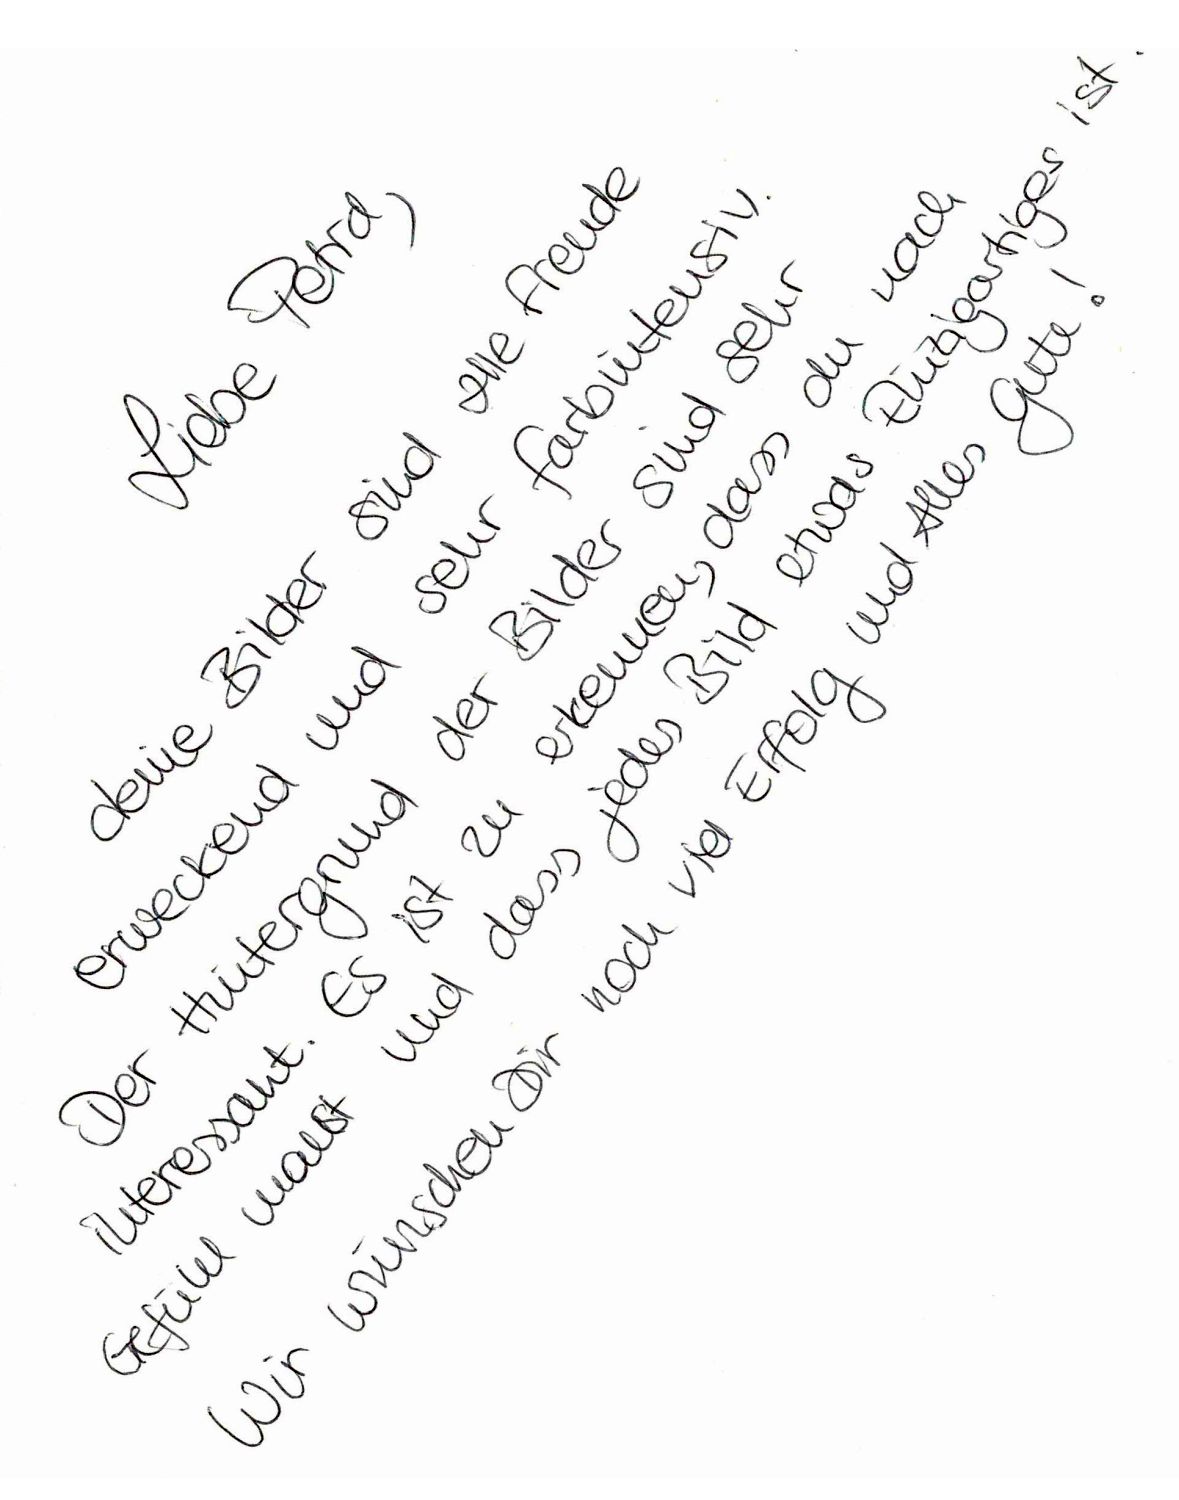 Liebe Petra,
deine Bilder sind alle Freude
erweckend und sehr farbintensiv.
Der Hintergrund der Bilder sind sehr
interessant. Es ist zu erkennen, dass du nach
Gefühl malst und dass jedes Bild etwas Einzigartiges ist.
Wir wünschen Dir noch viel Erfolg und Alles Gute!